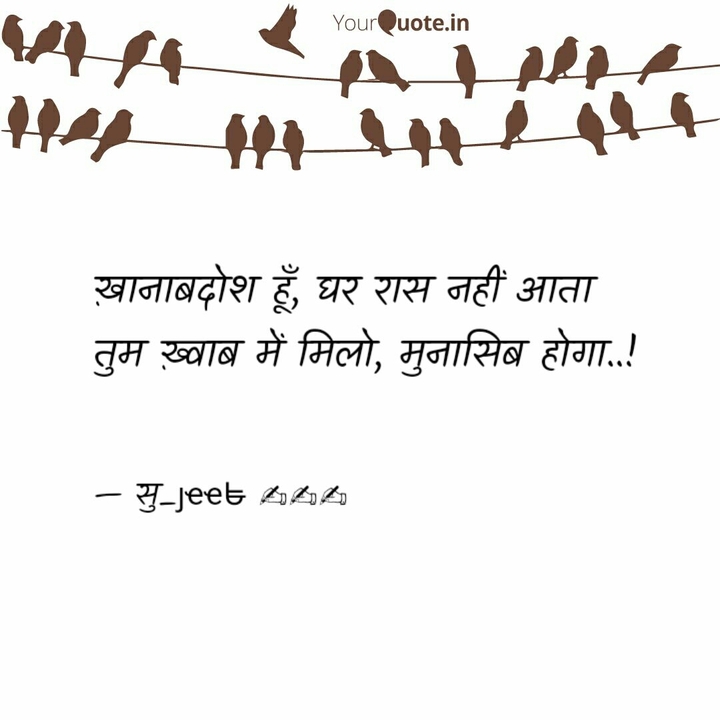 YourQuote.in
ख़ानाबदोश हूँ, घर रास नहीं आता
तुम ख़्वाब में मिलो, मुनासिब होगा..!
— सु_jeet ✍✍✍